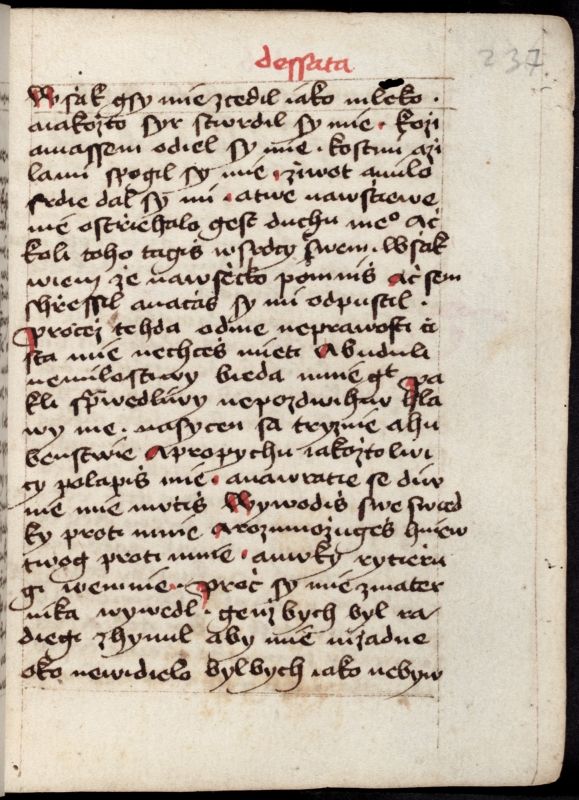 dessata
237
Wssak gsy mie zcedil iako mleko ·
aiakožto syr stwrdil sy mie · koži
amassem odiel sy mie · kostmi aži
lami spogil sy mie · žiwot amilo
srdie dal sy mi · atwe nawsstiewe
nie ostrziehalo gest duchu meº Ač
koli toho tagiš wsrdcy swem · Wssak
wiem že nawssecko pomniš Ač sem
shrzessil anačas sy mi odpustil ·
Proczež tehda odme neprawosti či
sta mie nechceš mieti Abuduli
nemilostiwy bieda mnie gt Pa
kli sprwedliwy nepozdwihnu hla
wy me · nasycen sa tryznie ahu
benstwie Apropychu iakožto lwi
cy polapiš mie · anawratie se diw
nie mie mučiš Wywodiš swe swied
ky proti mnie Arozmnožugeš hniew
twog proti mnie · amuky rytierzu
gi wemnie · Proč sy mie zmater
nika wywedl · genž bych byl ra
diegi zhynul aby mie nižadne
oko newidielo byl bych iako nebyw